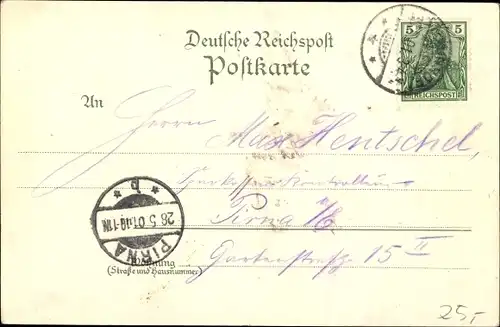 Deutsche Reichspost
Postkarte
5 5
REICHSPOST
An
Herrn Max Hentschel,
Sparkassen Kontrolleur
Pirna a/E.
Gartenstraße 15 II
Wohnung
(Straße und Hausnummer)
* b *
26.5.01
PIRNA
25,-